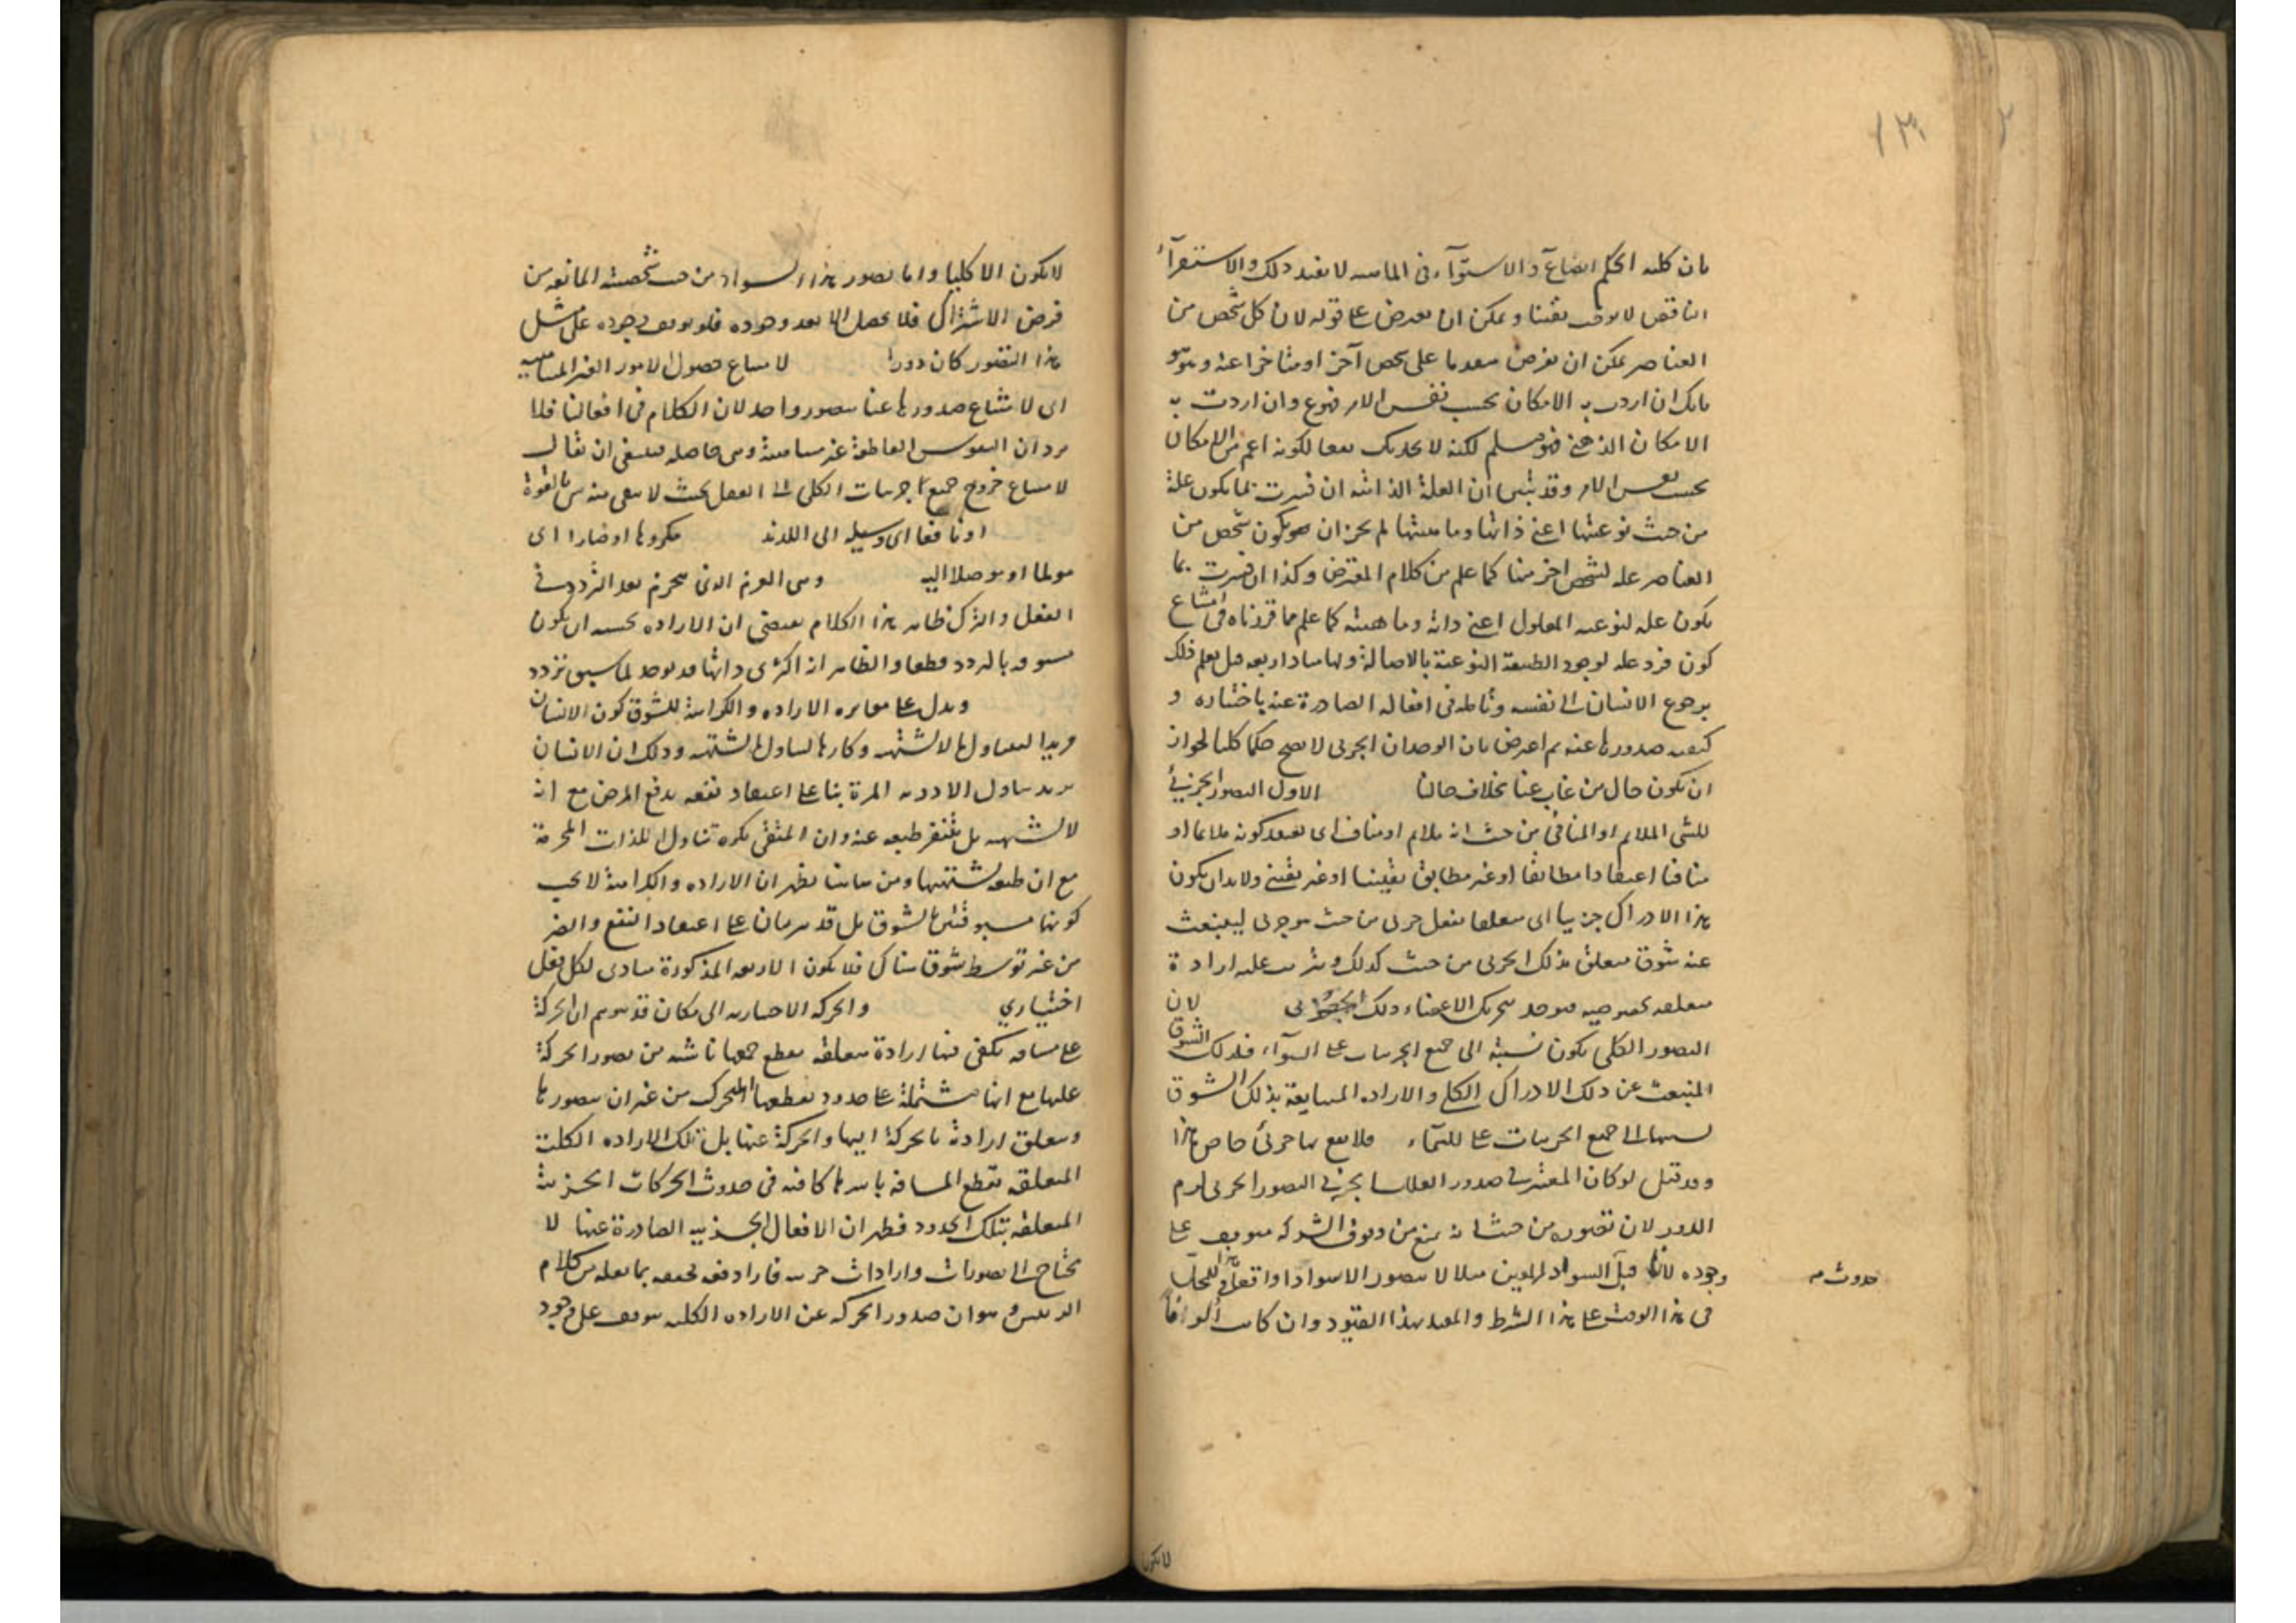 ١٣١
بان كليه الحكم ايضا ع والاستوآء فى الماهيه لا يفيد ذلك والاستقرآء
الناقص لا يوقف يقينا ويمكن ان يعترض على قوله لان كل شخص من
العناصر يمكن ان يفرض متقدما على شخص آخر او متاخرا عنه
بانك ان اردت به الامكان بحسب نفس الامر فممنوع وان اردت به
الامكان الذهنى فهو مسلم لكنه لا يجديك نفعا لكونه اعم من الامكان
بحسب نفس الامر وقد تبين ان العلة الذاتيه ان فسرت بما يكون علة
من حيث نوعيتها اعنى ذاتها وماهيتها لم يجز ان يكون شخص من
العناصر علة لشخص آخر منها كما علم من كلام المعترض وكذا ان فسرت بما
يكون علة لنوعيه المعلول اعنى ذاته وماهيته كما علم مما قررناه فى امتناع
كون فرد علة لوجود الطبيعة النوعية بالاصالة ولها مبادٍ اربعه قيل يعلم ذلك
برجوع الانسان الى نفسه وتامله فى افعاله الصادرة عنه باختياره و
كيفيه صدورها عنه ثم اعترض بان الوجدان الجزئى لا يصح حكما كليا لجواز
ان يكون حال من غاب عنا بخلاف حالنا الاول التصور الجزئى
للشئ الملايم او المنافى من حيث انه ملايم او مناف اى يعتقد كونه ملايما او
منافيا اعتقادا مطابقا او غير مطابق يقينيا او غير يقينى ولا بد ان يكون
هذا الادراك جزييا اى متعلقا بفعل جزئى من حيث هو جزئى لينبعث
عنه شوق متعلق بذلك الجزئى من حيث كذلك ويترتب عليه ارادة
متعلقه بخصوصيه فيوجد بتحريك الاعضاء ذلك الجزئى لان
التصور الكلى يكون نسبته الى جميع الجزئيات على السوآء فذلك الشوق
المنبعث عن ذلك الادراك الكلى والاراده المسايعة بذلك الشوق
نسبتها الى جميع الجزئيات على السوآء فلا يقع بها جزئى خاص هذا
وقد قيل لو كان المعتبر فى صدور الفعل الجزئى التصور الجزئى لزم
الدور لان تصوره من حيث انه يمنع من وقوع الشركه متوقف على
وجوده لانا قبل السواد مثلا لا نتصور الا سوادا واقعا فى هذا المحل
حدوث
فى هذا الوقت على هذا الشرط والمقيد بهذه القيود وان كانت الوفا
لا يكون
لا يكون الا كليا واما تصور هذا السواد من حيث شخصيته المانعه من
فرض الاشتراك فلا يحصل الا بعد وجوده فلو توقف وجوده على مثل
هذا التصور كان دورا لامتناع حصول الامور الغير المتناهيه
اى لامتناع صدورها عنا بتصور واحد لان الكلام فى افعالنا فلا
يرد ان النفوس الناطقة غير متناهية ومن حاصله فينبغى ان يقال
لامتناع خروج جميع جزئيات الكلى الى الفعل بحيث لا يبقى منه شئ بالقوة
او نافعا اى وسيلة الى اللذة مكروها او ضارا اى
مولما او موصلا اليه وهى العزم الذى يجزم بعد التردد فى
الفعل والترك ظاهر هذا الكلام يقتضى ان الاراده يجب ان يكون
مسبوقه بالتردد قطعا والظاهر انه اكثرى وانها قد توجد بلا سبق تردد
ويدل على مغايره الاراده والكراهة للشوق كون الانسان
مريدا لتناول ما لا يشتهيه وكارها لتناول ما يشتهيه وذلك ان الانسان
يريد تناول الادويه المرة بنا على اعتقاد نفعه بدفع المرض مع انه
لا يشتهيه بل يتنفر طبعه عنه وان المتقى يكره تناول اللذات المحرمة
مع ان طبعه يشتهيها ومن هاهنا يظهر ان الاراده والكراهة لا يجب
كونهما مسبوقتين بالشوق بل قد يترتبان على اعتقاد النفع والضر
من غير توسط شوق هناك فلا يكون الاربعه المذكورة مبادى لكل فعل
اختيارى والحركة الاختياريه الى مكان قد يتوهم ان الحركة
على مسافه يكفى فيها ارادة متعلقه بقطع جميعها ناشيه من تصور الحركة
عليها مع انها مشتملة على حدود يقطعها المتحرك من غير ان يتصورها
ويتعلق ارادته بالحركة اليها والحركة عنها بل تلك الاراده الكلية
المتعلقه بقطع المسافه باسرها كافيه فى حدوث الحركات الجزئية
المتعلقه بتلك الحدود فظهر ان الافعال الجزئيه الصادرة عنها لا
تحتاج الى تصورات وارادات جزئيه فاراد دفعه بما نقله من كلام
الرئيس وهو ان صدور الحركة عن الاراده الكليه يتوقف على وجود